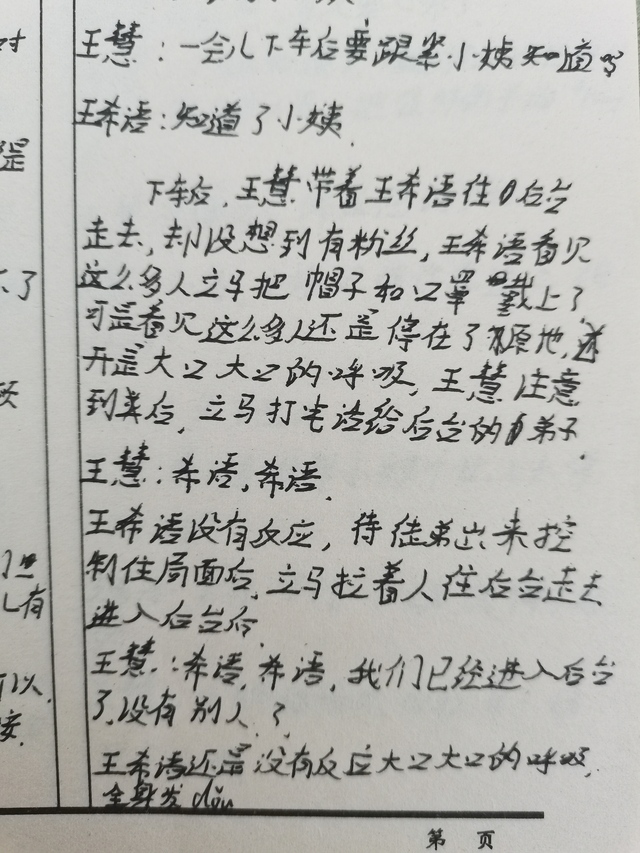 王慧：一会儿下车后要跟紧小姨知道吗
王希语：知道了小姨.
下车后,王慧带着王希语往后台
走去,却没想到有粉丝,王希语看见
这么多人立马把帽子和口罩戴上了,
可是看见这么多人还是停在了原地,
开是大口大口的呼吸,王慧注意
到类后,立马打电话给后台的弟子.
王慧：希语,希语.
王希语没有反应,待徒弟出来控
制住局面后,立马拉着人往后台走去
进入后台后,
王慧：希语,希语,我们已经进入后台
了,没有别人了
王希语还是没有反应大口大口的呼吸,
全身发dǒu
对
是
不了
有
可以,
接.
第 页